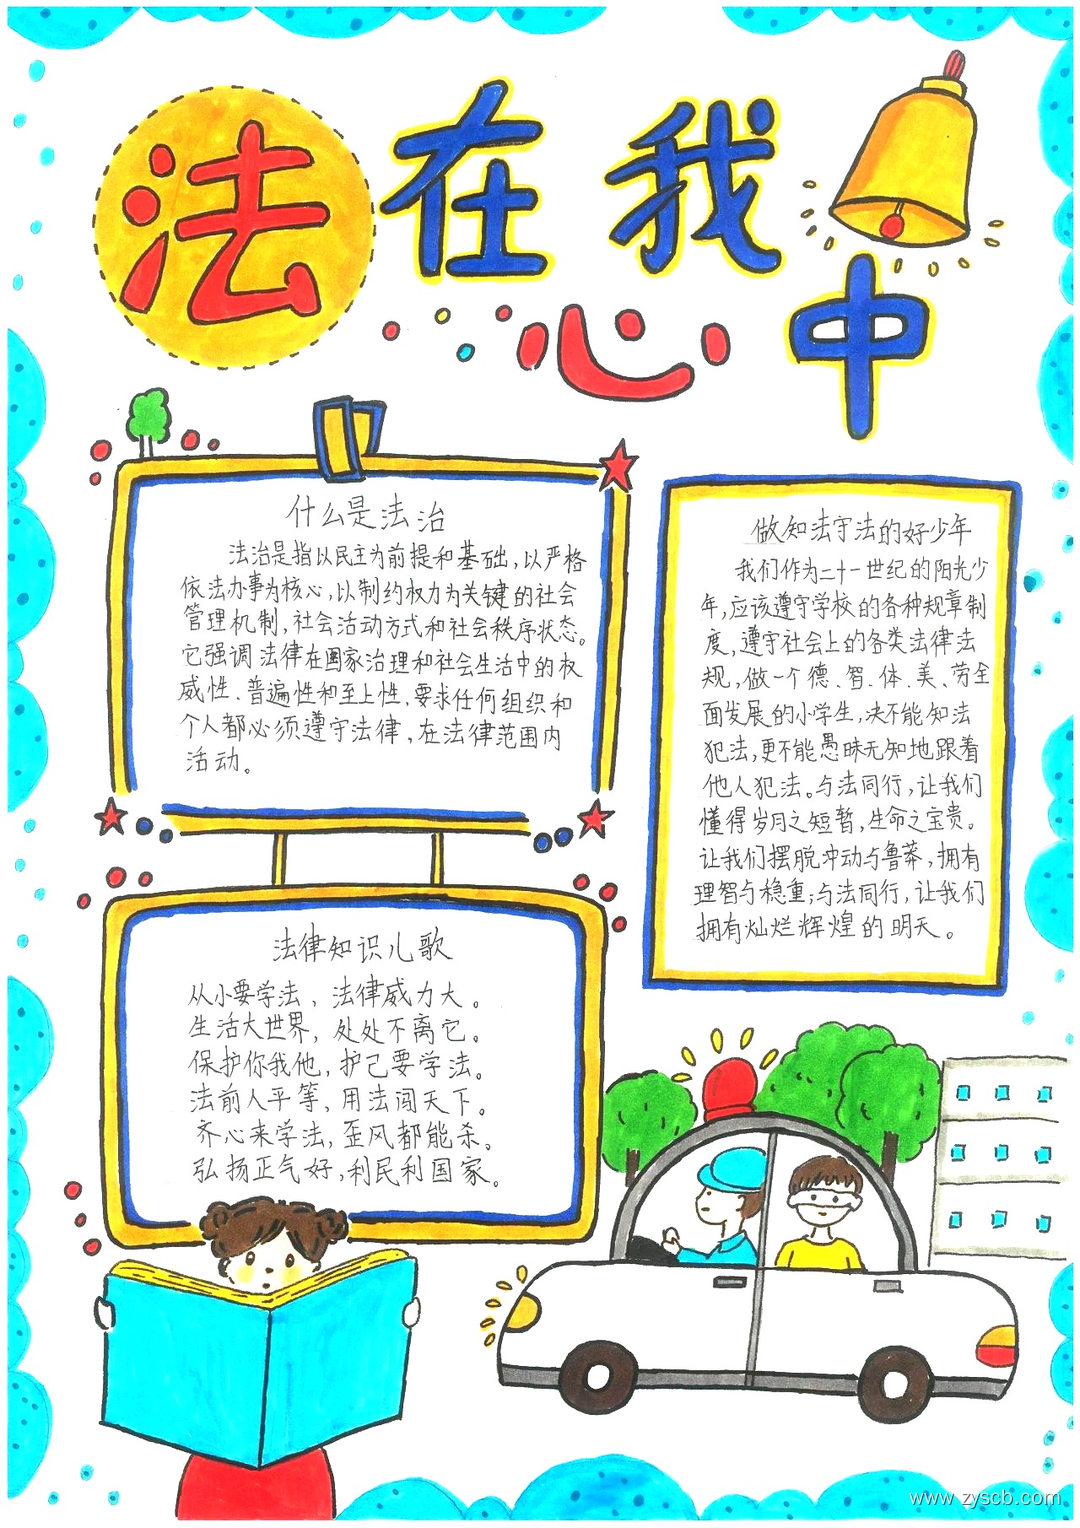 法在我
心中
什么是法治
法治是指以民主为前提和基础,以严格
依法办事为核心,以制约权力为关键的社会
管理机制,社会活动方式和社会秩序状态。
它强调法律在国家治理和社会生活中的权
威性、普遍性和至上性,要求任何组织和
个人都必须遵守法律,在法律范围内
活动。
做知法守法的好少年
我们作为二十一世纪的阳光少
年,应该遵守学校的各种规章制
度,遵守社会上的各类法律法
规,做一个德、智、体、美、劳全
面发展的小学生,决不能知法
犯法,更不能愚昧无知地跟着
他人犯法。与法同行,让我们
懂得岁月之短暂,生命之宝贵。
让我们摆脱冲动与鲁莽,拥有
理智与稳重;与法同行,让我们
拥有灿烂辉煌的明天。
法律知识儿歌
从小要学法、法律威力大。
生活大世界,处处不离它。
保护你我他,护己要学法。
法前人平等,用法闯天下。
齐心来学法,歪风都能杀。
弘扬正气好,利民利国家。
www.zyscb.com